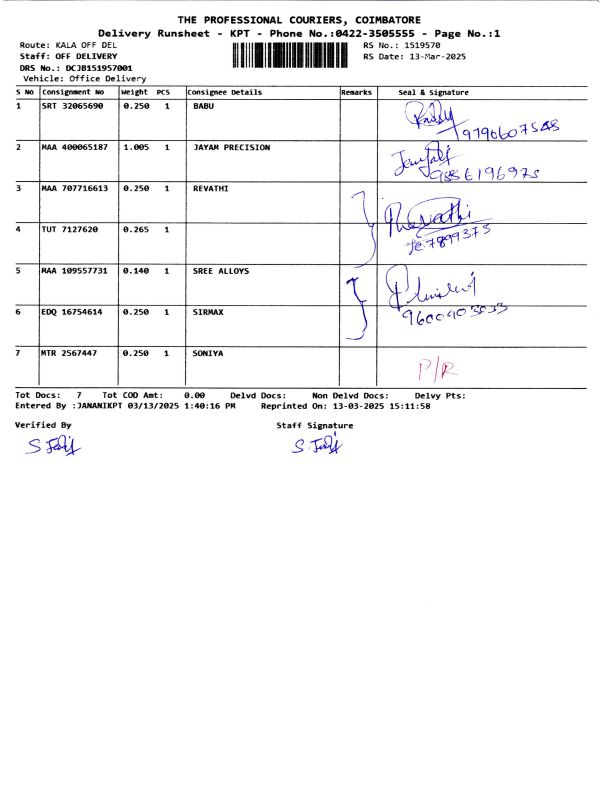 THE PROFESSIONAL COURIERS, COIMBATORE
Delivery Runsheet - KPT - Phone No.:0422-3505555 - Page No.:1
Route: KALA OFF DEL RS No.: 1519570
Staff: OFF DELIVERY RS Date: 13-Mar-2025
DRS No.: DCJB151957001
Vehicle: Office Delivery
S No Consignment No Weight PCS Consignee Details Remarks Seal & signature
1 SRT 32065690 0.250 1 BABU
9790607548
2 MAA 400065187 1.005 1 JAYAM PRECISION
3 MAA 707716613 0.250 1 REVATHI
Revathi
4 TUT 7127620 0.265 1
7899375
5 MAA 109557731 0.140 1 SREE ALLOYS
6 EDQ 16754614 0.250 1 SIRMAX
9600403033
7 MTR 2567447 0.250 1 SONIYA
P/R
Tot Docs: 7 Tot COD Amt: 0.00 Delvd Docs: Non Delvd Docs: Delvy Pts:
Entered By :JANANIKPT 03/13/2025 1:40:16 PM Reprinted On: 13-03-2025 15:11:58
Verified By Staff Signature